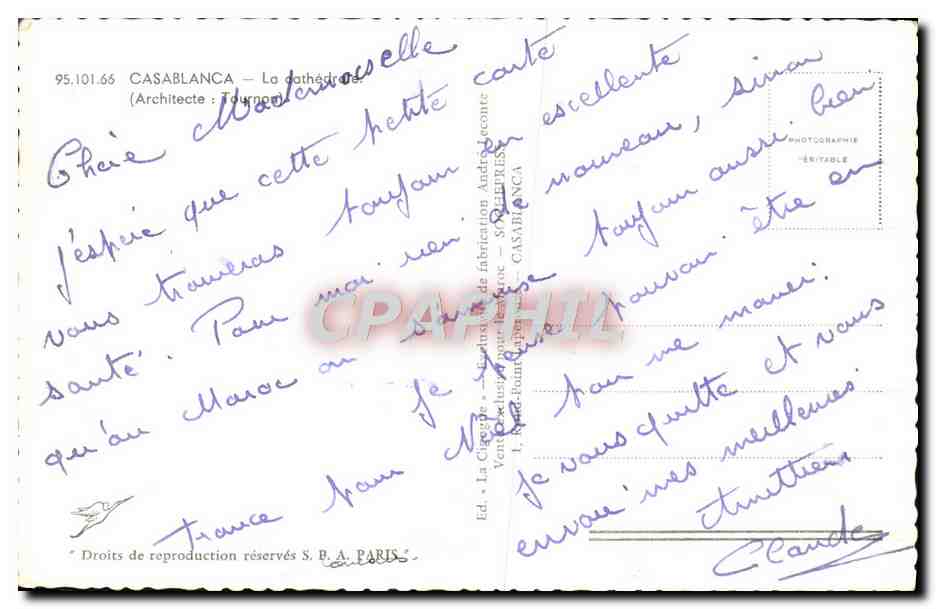 95.101.66 CASABLANCA — La cathédrale.
(Architecte : Tournon)
PHOTOGRAPHIE
VÉRITABLE
Chère Mademoiselle
J'espère que cette petite carte
vous trouveras toujours en excellente
santé. Pour moi rien de nouveau, sinon
qu'au Maroc on s'amuse toujours aussi bien
Je pense pouvoir être en
France pour Noël pour me marier.
Je vous quitte et vous
envoie mes meilleures
Amitiées
Claude
Ed. "La Cigogne" — Exclusivité de fabrication André Leconte
Vente exclusive pour le Maroc — SOCHEPRESS
1, Rond-Point — CASABLANCA
"Droits de reproduction réservés S. P. A. PARIS"
CPAPHIL